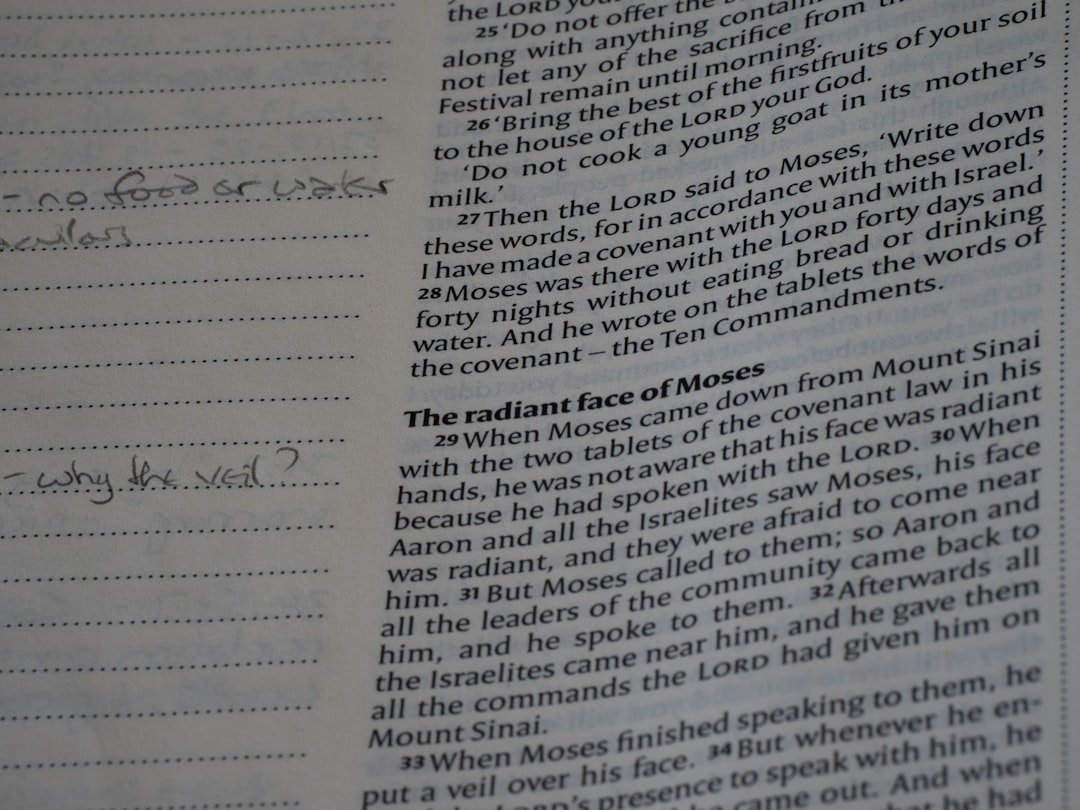 - no food or water
the LORD
25 ‘Do not offer the
along with anything
not let any of the sacrifice from
Festival remain until morning.
26 ‘Bring the best of the firstfruits of your soil
to the house of the LORD your God.
‘Do not cook a young goat in its mother’s
milk.’
27 Then the LORD said to Moses, ‘Write down
these words, for in accordance with these words
I have made a covenant with you and with Israel.’
28 Moses was there with the LORD forty days and
forty nights without eating bread or drinking
water. And he wrote on the tablets the words of
the covenant – the Ten Commandments.
- why the veil?
The radiant face of Moses
29 When Moses came down from Mount Sinai
with the two tablets of the covenant law in his
hands, he was not aware that his face was radiant
because he had spoken with the LORD. 30 When
Aaron and all the Israelites saw Moses, his face
was radiant, and they were afraid to come near
him. 31 But Moses called to them; so Aaron and
all the leaders of the community came back to
him, and he spoke to them. 32 Afterwards all
the Israelites came near him, and he gave them
all the commands the LORD had given him on
Mount Sinai.
33 When Moses finished speaking to them, he
put a veil over his face. 34 But whenever he en-
LORD’s presence to speak with him, he
came out. And when
he had